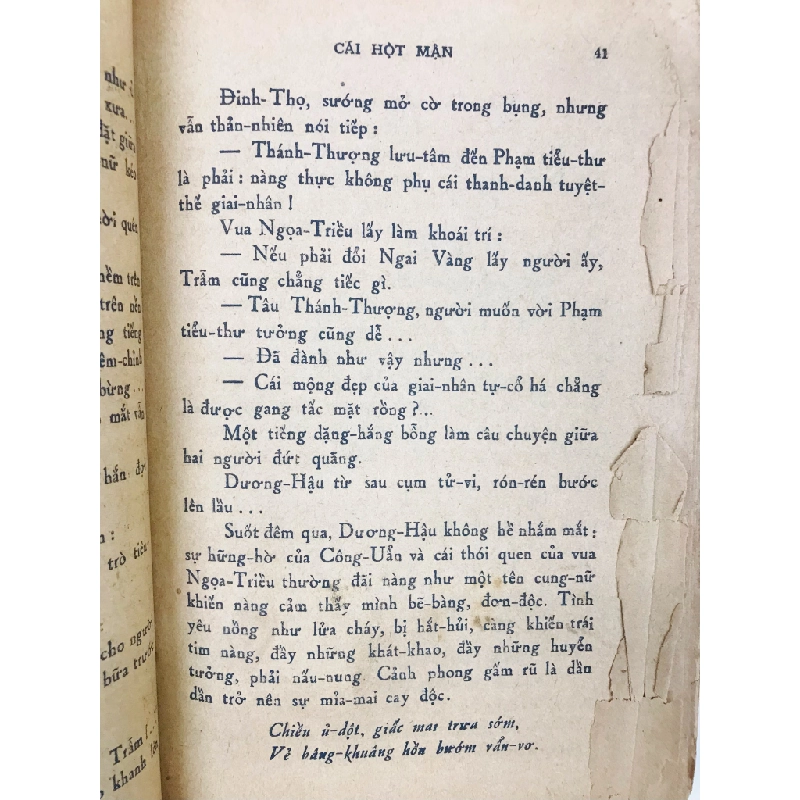 như
xưa...
đặt giữa
nữ kéo
quét
mềm trên
trên nền
tiếng
bừng...
mắt vẫn
hắn
trò tiêu
cho người
bữa trước
Trẫm
khanh
CÁI HỘT MẬN 41
Đinh-Thọ, sướng mở cờ trong bụng, nhưng
vẫn thản-nhiên nói tiếp :
— Thánh-Thượng lưu-tâm đến Phạm tiểu-thư
là phải : nàng thực không phụ cái thanh-danh tuyệt-
thế giai-nhân !
Vua Ngọa-Triều lấy làm khoái trí :
— Nếu phải đổi Ngai Vàng lấy người ấy,
Trẫm cũng chẳng tiếc gì.
— Tâu Thánh-Thượng, người muốn vời Phạm
tiểu-thư tưởng cũng dễ...
— Đã đành như vậy nhưng...
— Cái mộng đẹp của giai-nhân tự-cổ há chẳng
là được gang tấc mặt rồng ?...
Một tiếng dặng-hắng bỗng làm câu chuyện giữa
hai người đứt quãng.
Dương-Hậu từ sau cụm tử-vi, rón-rén bước
lên lầu...
Suốt đêm qua, Dương-Hậu không hề nhắm mắt :
sự hững-hờ của Công-Uẩn và cái thói quen của vua
Ngọa-Triều thường đãi nàng như một tên cung-nữ
khiến nàng cảm thấy mình bẽ-bàng, đơn-độc. Tình
yêu nồng như lửa cháy, bị hắt-hủi, càng khiến trái
tim nàng, đầy những khát-khao, đầy những huyễn
tưởng, phải nấu-nung. Cảnh phong gấm rũ là dần
dần trở nên sự mỉa-mai cay độc.
Chiều ủ-dột, giấc mai trưa sớm,
Vẻ bâng-khuâng hồn bướm vẩn-vơ.